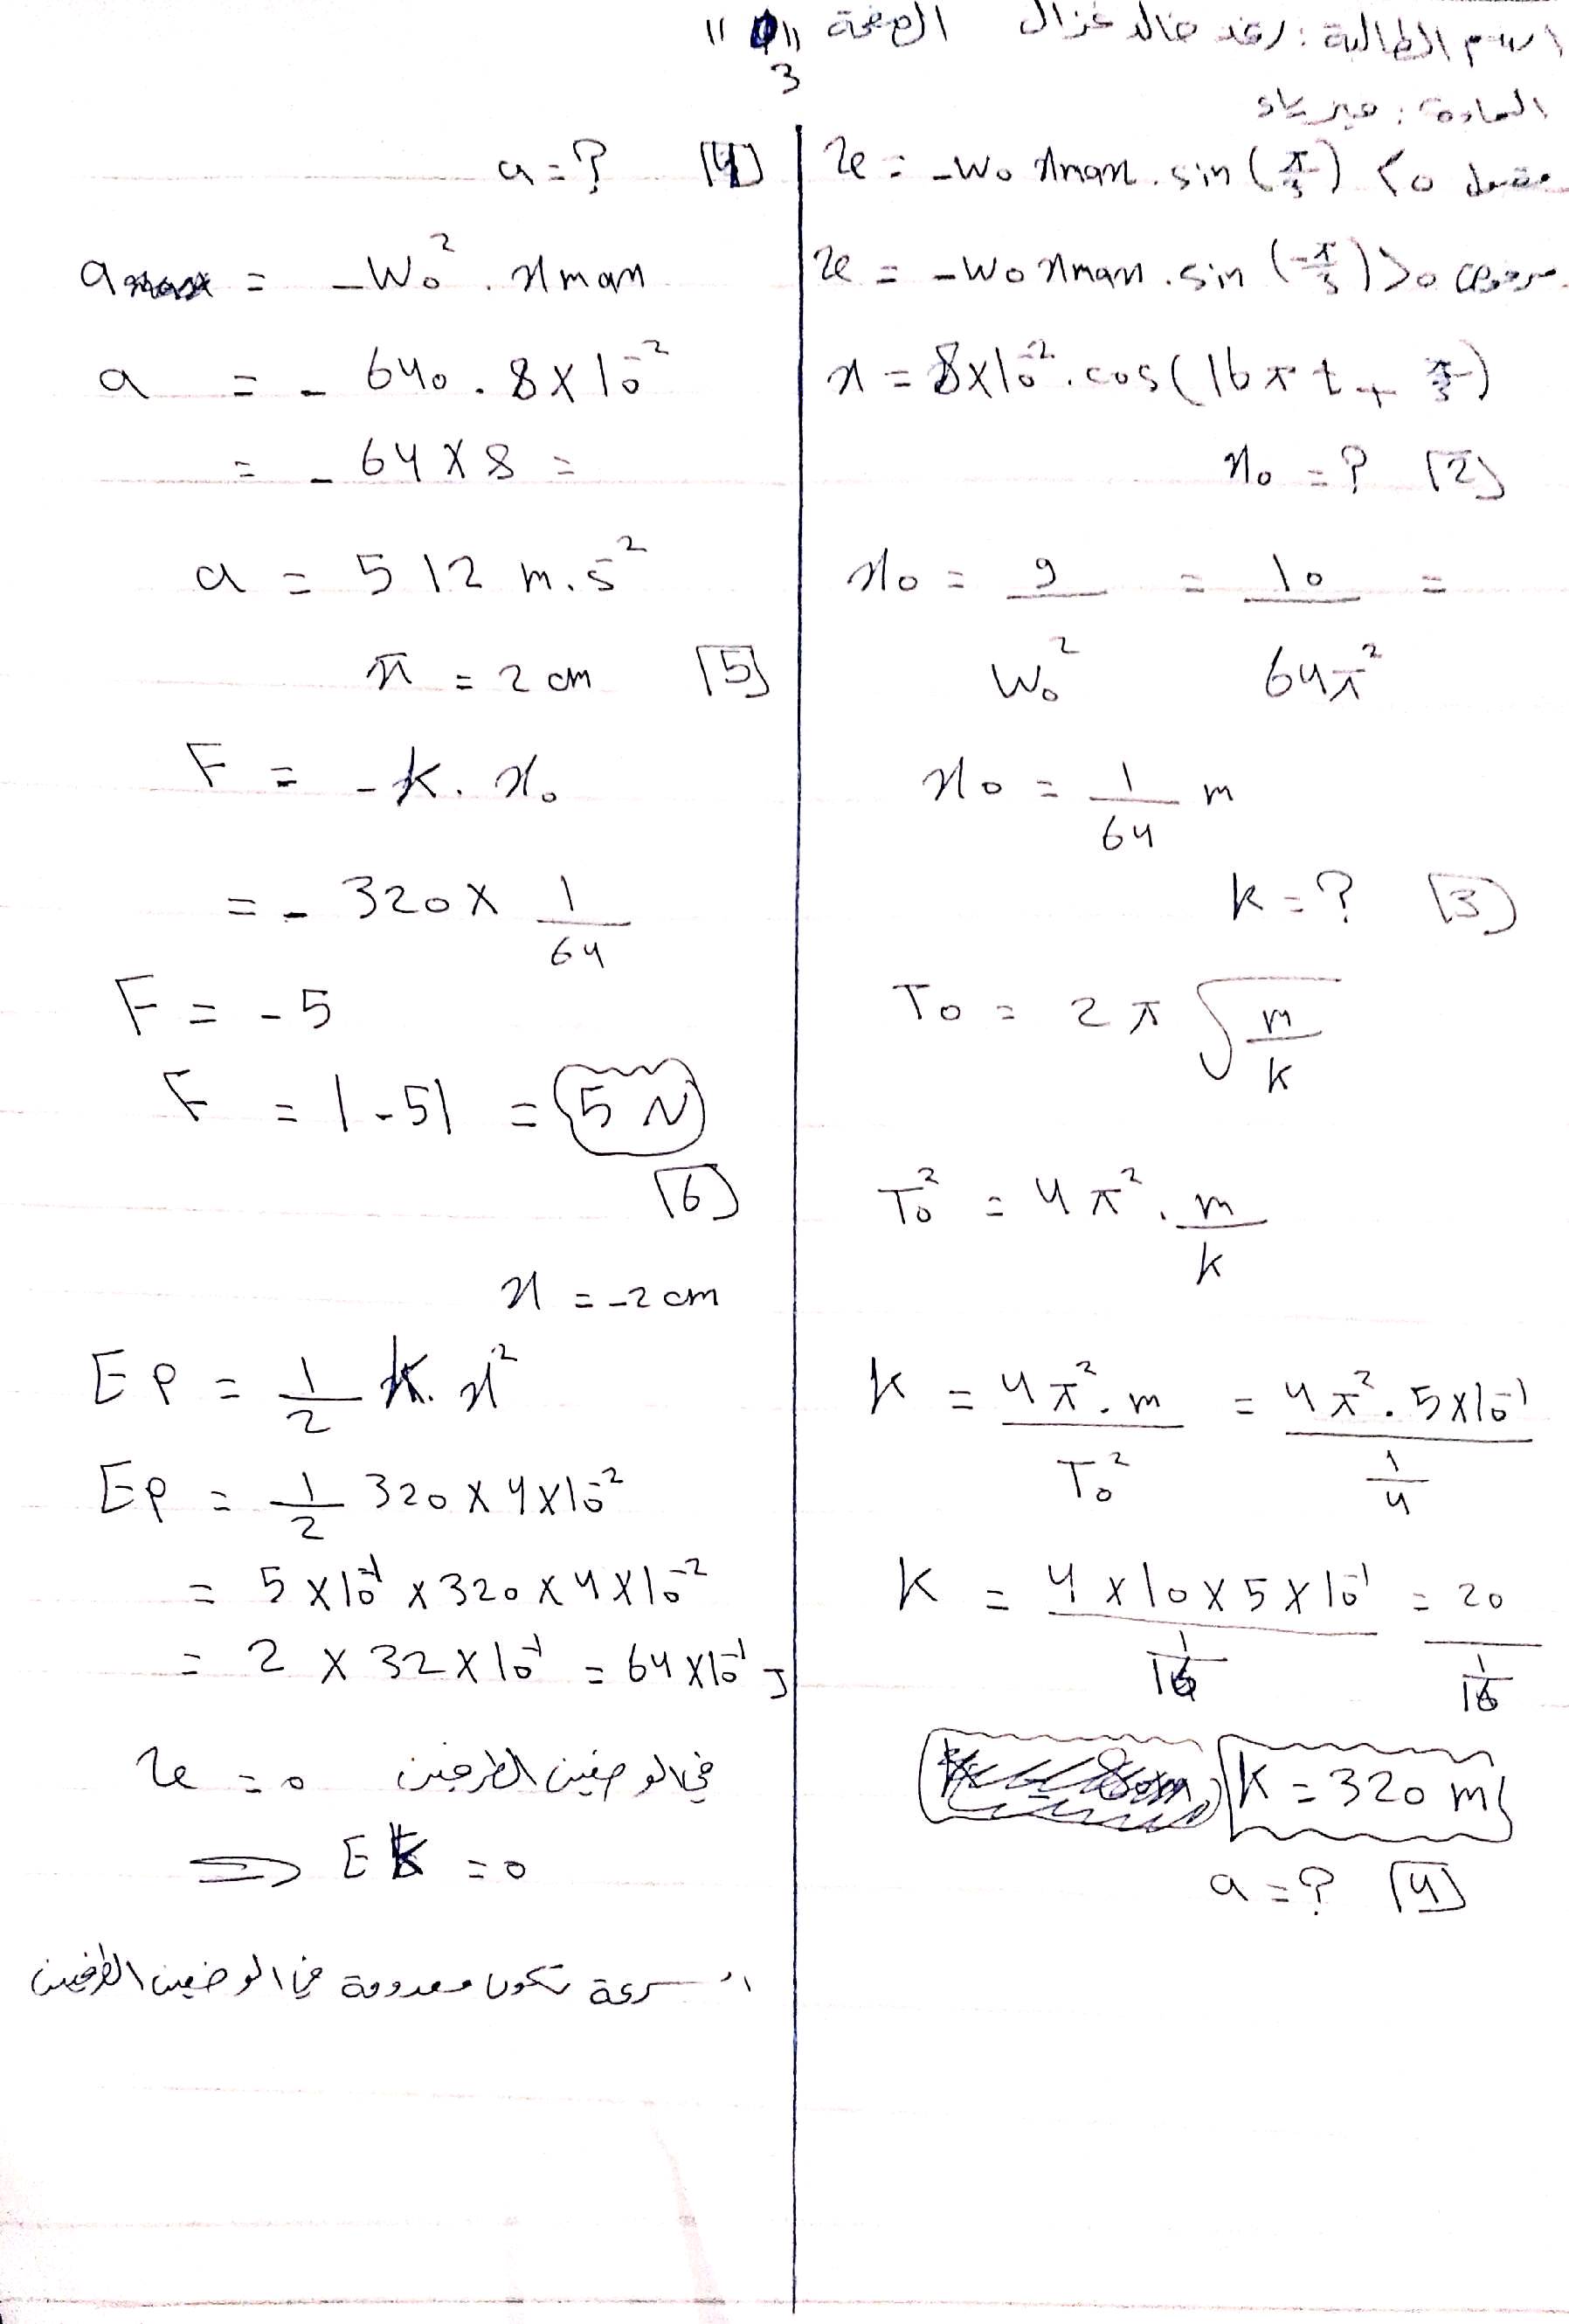 اسم الطالبة : رغد خالد غزال الصفحة "
3
المادة : فيزياء
v = -W₀ xmax . sin (π/3) < 0 مقبول
v = -W₀ xmax . sin (-π/3) > 0 مرفوض
x = 8×10⁻² . cos(16πt + π/3)
x₀ = ? [2]
x₀ = g/W₀² = 10/64π² =
x₀ = 1/64 m
k = ? [3]
T₀ = 2π √(m/k)
T₀² = 4π² . m/k
k = 4π² . m/T₀² = 4π² . 5×10⁻¹/(1/4)
k = 4×10×5×10⁻¹/(1/16) = 20/(1/16)
k = 320 m
a = ? [4]
a = ? [4]
a = -W₀² . xmax
a = - 640 . 8×10⁻²
= - 64×8 =
a = 512 m.s⁻²
x = 2 cm [5]
F = -k . x₀
= - 320 × 1/64
F = -5
F = |-5| = 5 N
[6]
x = -2 cm
Ep = 1/2 k . x²
Ep = 1/2 320 × 4×10⁻²
= 5×10⁻¹ × 320 × 4×10⁻²
= 2 × 32×10⁻¹ = 64×10⁻¹ J
في الوضعين الطرفيين v = 0
⇒ Ek = 0
السرعة تكون معدومة في الوضعين الطرفيين